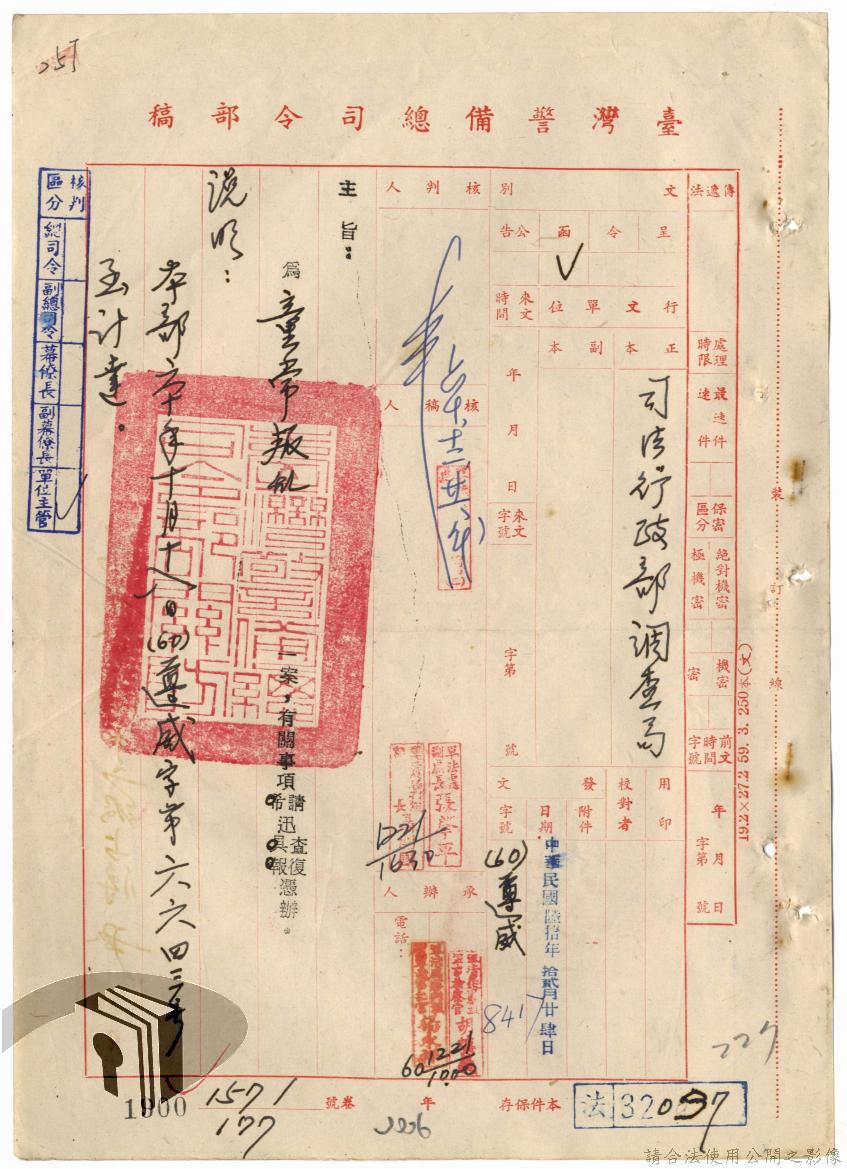 臺灣警備總司令部稿
傳遞法
處理時限
最速件
速件
保密區分
絕對機密
極機密
機密
密
前文時間字號
年月日
字第號
文別
呈
令
函
公告
行文單位
來文時間
正本
副本
司法行政部調查局
年月日
來文字號
字第號
用印
校對者
發文
附件
日期
字號
中華民國陸拾年拾貳月廿肆日
(60)遵威
8417
核判人
核稿人
1221
1630
承辦人
電話：
60 1221
1000
主旨：
為童常叛乱一案，有關事項請查復
希迅具報憑辦。
說明：
本部六十年十月十八日(60)遵威字第六六四三號
函計達。
核判區分
總司令
副總司令
幕僚長
副幕僚長
單位主管
裝
訂
線
19.2×27.2 59. 3. 250本(文)
227
本件保存
年
卷
號
1571
177
1900
法32037
請合法使用公開之影像